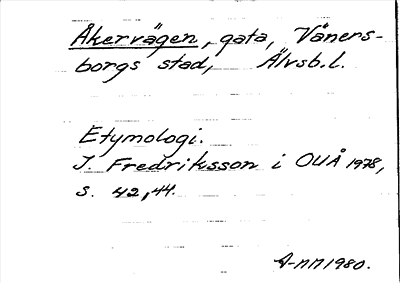 Åkervägen, gata, Väners-
borgs stad, Älvsb.l.
Etymologi.
I. Fredriksson i OUÅ 1978,
s. 42,44.
A-NN 1980.